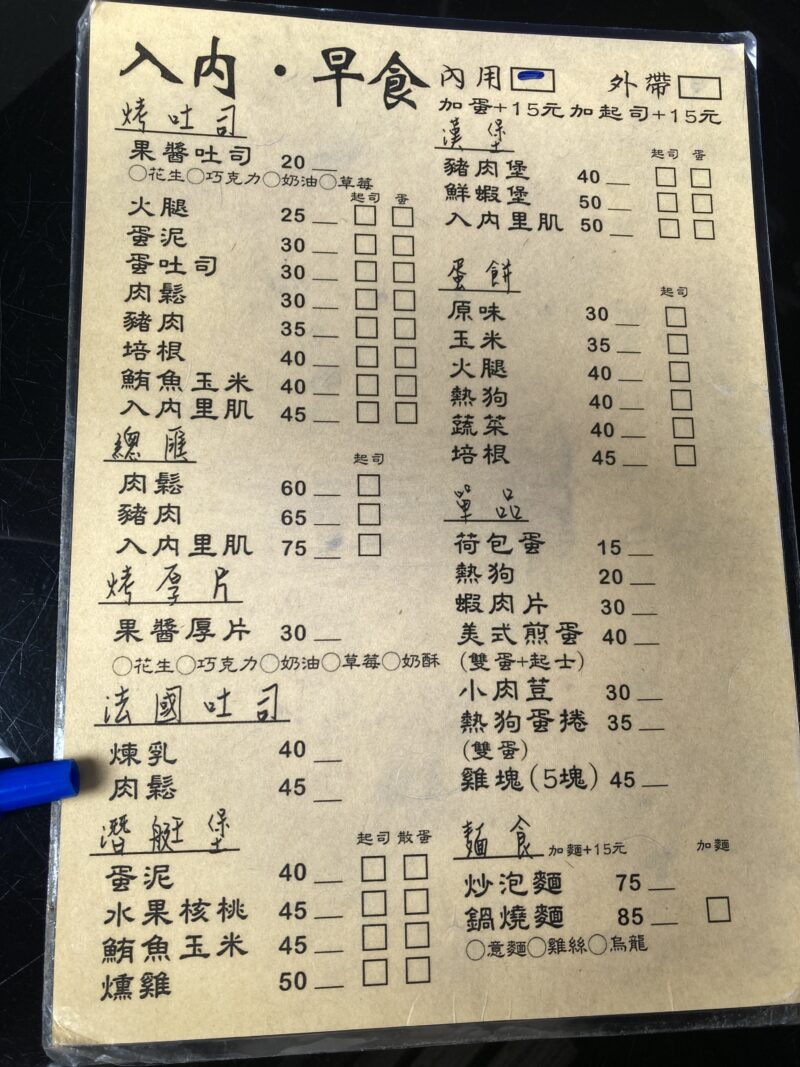 入內・早食
內用 外帶
加蛋+15元 加起司+15元
烤吐司
果醬吐司 20
○花生○巧克力○奶油○草莓
起司 蛋
火腿 25
蛋泥 30
蛋吐司 30
肉鬆 30
豬肉 35
培根 40
鮪魚玉米 40
入內里肌 45
總匯
起司
肉鬆 60
豬肉 65
入內里肌 75
烤厚片
果醬厚片 30
○花生○巧克力○奶油○草莓○奶酥
法國吐司
煉乳 40
肉鬆 45
潛艇堡
起司 散蛋
蛋泥 40
水果核桃 45
鮪魚玉米 45
燻雞 50
漢堡
起司 蛋
豬肉堡 40
鮮蝦堡 50
入內里肌 50
蛋餅
起司
原味 30
玉米 35
火腿 40
熱狗 40
蔬菜 40
培根 45
單品
荷包蛋 15
熱狗 20
蝦肉片 30
美式煎蛋 40
(雙蛋+起士)
小肉荳 30
熱狗蛋捲 35
(雙蛋)
雞塊(5塊) 45
麵食 加麵+15元 加麵
炒泡麵 75
鍋燒麵 85
○意麵○雞絲○烏龍